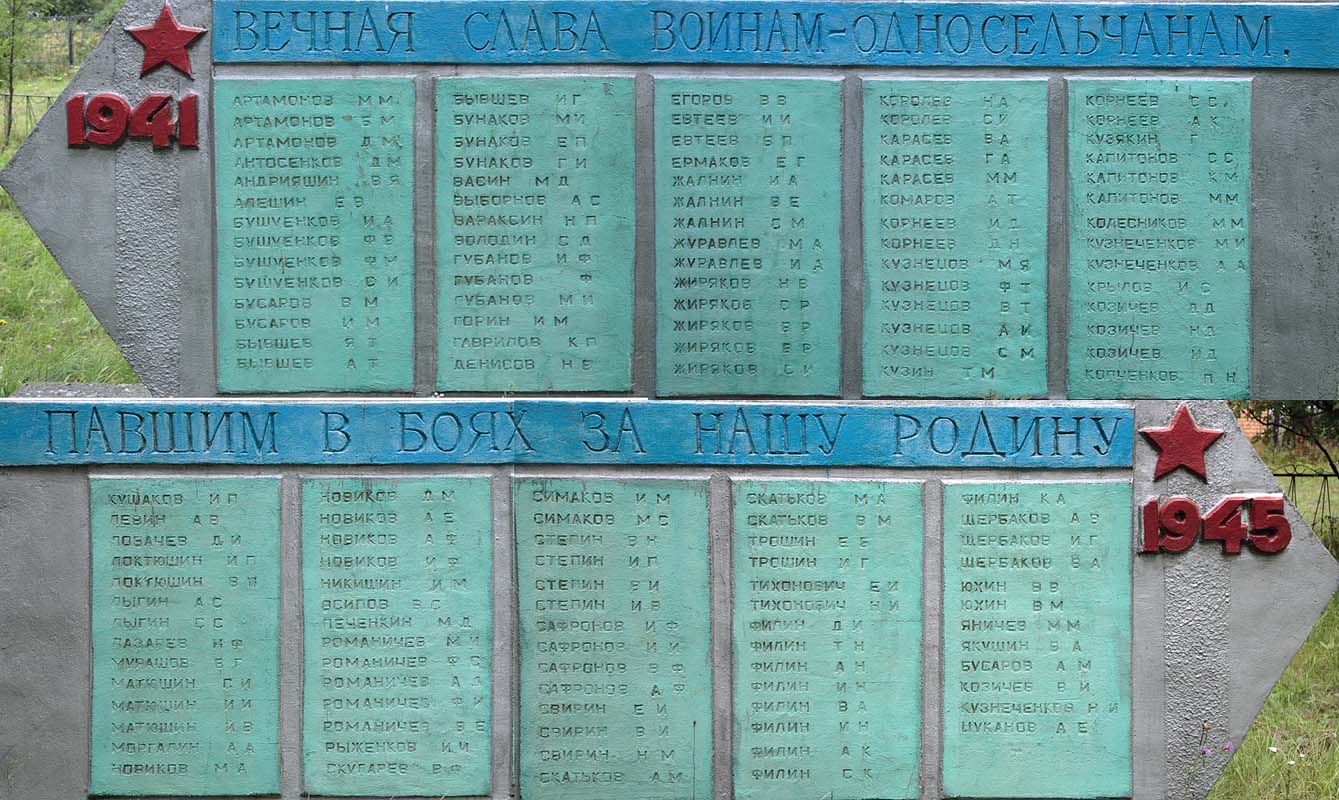 ВЕЧНАЯ СЛАВА ВОИНАМ-ОДНОСЕЛЬЧАНАМ.
1941
АРТАМОНОВ М М
АРТАМОНОВ Б М
АРТАМОНОВ Д М
АНТОСЕНКОВ Д М
АНДРИЯШИН В Я
АЛЕШИН Е В
БУШУЕНКОВ И А
БУШУЕНКОВ Ф В
БУШУЕНКОВ Ф М
БУШУЕНКОВ С И
БУСАРОВ В М
БУСАРОВ И М
БЫВШЕВ Я Т
БЫВШЕВ А Т
БЫВШЕВ И Г
БУНАКОВ М И
БУНАКОВ Е П
БУНАКОВ Г И
ВАСИН М Д
ВЫБОРНОВ А С
ВАРАКСИН Н П
ВОЛОДИН С Д
ГУБАНОВ И Ф
ГУБАНОВ Ф
ГУБАНОВ М И
ГОРИН И М
ГАВРИЛОВ К П
ДЕНИСОВ Н Е
ЕГОРОВ В В
ЕВТЕЕВ И И
ЕВТЕЕВ В П
ЕРМАКОВ Е Г
ЖАЛНИН И А
ЖАЛНИН В Е
ЖАЛНИН С М
ЖУРАВЛЕВ М А
ЖУРАВЛЕВ И Д
ЖИРЯКОВ Н В
ЖИРЯКОВ С Р
ЖИРЯКОВ В Р
ЖИРЯКОВ Е Р
ЖИРЯКОВ С И
КОРОЛЕВ Н А
КОРОЛЕВ С И
КАРАСЕВ В А
КАРАСЕВ Г А
КАРАСЕВ М М
КОМАРОВ А Т
КОРНЕЕВ И Д
КОРНЕЕВ Д Н
КУЗНЕЦОВ М Я
КУЗНЕЦОВ Ф Т
КУЗНЕЦОВ В Т
КУЗНЕЦОВ А И
КУЗНЕЦОВ С М
КУЗИН Т М
КОРНЕЕВ С С
КОРНЕЕВ А К
КУЗЯКИН Г
КАПИТОНОВ С С
КАПИТОНОВ К М
КАПИТОНОВ М М
КОЛЕСНИКОВ М М
КУЗНЕЧЕНКОВ М И
КУЗНЕЧЕНКОВ А А
КРЫЛОВ И С
КОЗИЧЕВ Д Д
КОЗИЧЕВ Н Д
КОЗИЧЕВ И Д
КОПЧЕНКОВ П Н
ПАВШИМ В БОЯХ ЗА НАШУ РОДИНУ
1945
КУШАКОВ И П
ЛЕВИН А В
ЛОБАЧЕВ Д И
ЛОКТЮШИН И П
ЛОКТЮШИН В П
ЛЫГИН А С
ЛЫГИН С С
ЛАЗАРЕВ И Ф
МУРАШОВ В Г
МАТЮШИН С И
МАТЮШИН И И
МАТЮШИН И В
МОРГАЛИН А А
НОВИКОВ М А
НОВИКОВ Д М
НОВИКОВ А Е
НОВИКОВ А Ф
НОВИКОВ И Ф
НИКИШИН И М
ОСИПОВ В С
ПЕЧЕНКИН М Д
РОМАНИЧЕВ М И
РОМАНИЧЕВ Ф С
РОМАНИЧЕВ А З
РОМАНИЧЕВ Ф И
РОМАНИЧЕВ В Е
РЫЖЕНКОВ И И
СКУГАРЕВ В Ф
СИМАКОВ И М
СИМАКОВ М С
СТЕПИН В Н
СТЕПИН И П
СТЕПИН В И
СТЕПИН И В
САФРОНОВ И Ф
САФРОНОВ И И
САФРОНОВ В Ф
САФРОНОВ А Ф
СВИРИН Е И
СВИРИН В И
СВИРИН Н М
СКАТЬКОВ А М
СКАТЬКОВ М А
СКАТЬКОВ В М
ТРОШИН Е Е
ТРОШИН И Г
ТИХОНОВИЧ Е И
ТИХОНОВИЧ Н И
ФИЛИН Д И
ФИЛИН Т Н
ФИЛИН А Н
ФИЛИН И Н
ФИЛИН В А
ФИЛИН И Н
ФИЛИН А К
ФИЛИН С К
ФИЛИН К А
ЩЕРБАКОВ А В
ЩЕРБАКОВ И Г
ЩЕРБАКОВ В А
ЮХИН В В
ЮХИН В М
ЯНИЧЕВ М М
ЯКУШИН В А
БУСАРОВ А М
КОЗИЧЕВ В И
КУЗНЕЧЕНКОВ Н И
ЦУКАНОВ А Е